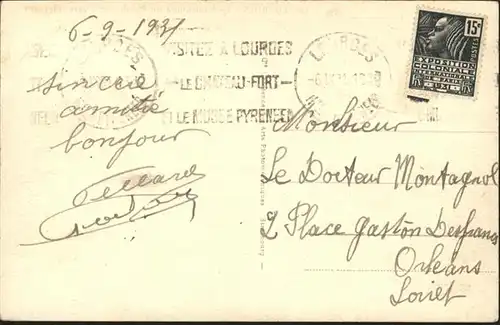 6-9-1931
VISITEZ A LOURDES
LE CHATEAU-FORT
ET LE MUSEE PYRENEEN
LOURDES
15c
EXPOSITION
COLONIALE
INTERNATIONALE
sincère
amitié
bonjour
Monsieur
Le Docteur Montagnol
2 Place Gaston Desfrancs
Orléans
Loiret